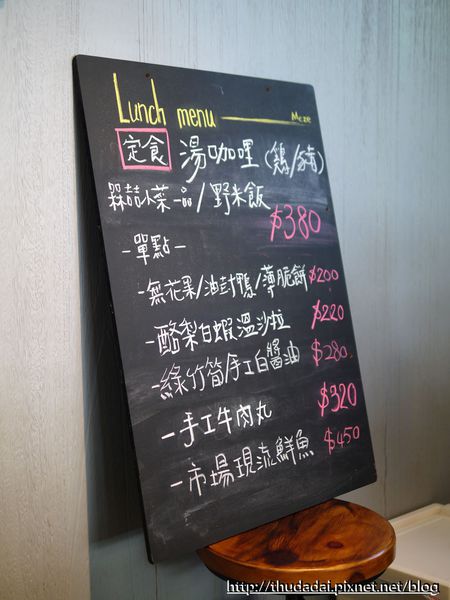 Lunch menu Meze
定食 湯咖哩 (鶏/豬)
槑喆小菜一品/野米飯
$380
-單點-
-無花果/油封鴨/薄脆餅 $200
-酪梨白蝦溫沙拉 $220
-綠竹筍/手工白醬油 $280
-手工牛肉丸 $320
-市場現流鮮魚 $450
http://thudadai.pixnet.net/blog